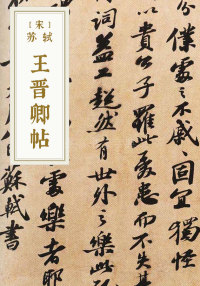 [宋]
苏轼
王晋卿帖
分僕處之不戚固宜獨怪
以貴公子罹此憂患而不失其
詞益工超然有世外之樂此
處樂者耶
蘇軾書